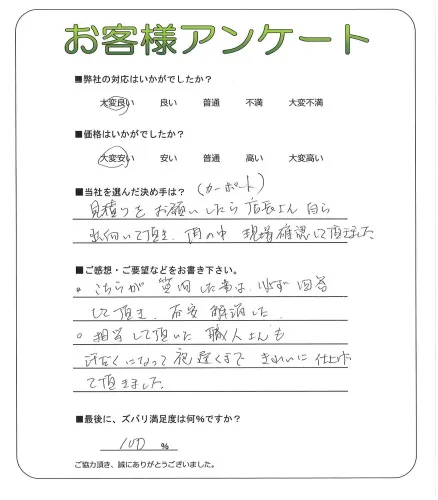 お客様アンケート
■弊社の対応はいかがでしたか？
大変良い 良い 普通 不満 大変不満
■価格はいかがでしたか？
大変安い 安い 普通 高い 大変高い
■当社を選んだ決め手は？（カーポート）
見積りをお願いしたら店長さん自ら
出向いて頂き、雨の中 現場確認して頂きました
■ご感想・ご要望などをお書き下さい。
。こちらが質問した事は、必ず回答
して頂き、不安解消した。
。担当して頂いた職人さんも
汗だくになって夜遅くまできれいに仕上
て頂きました
■最後に、ズバリ満足度は何％ですか？
100 ％
ご協力頂き、誠にありがとうございました。